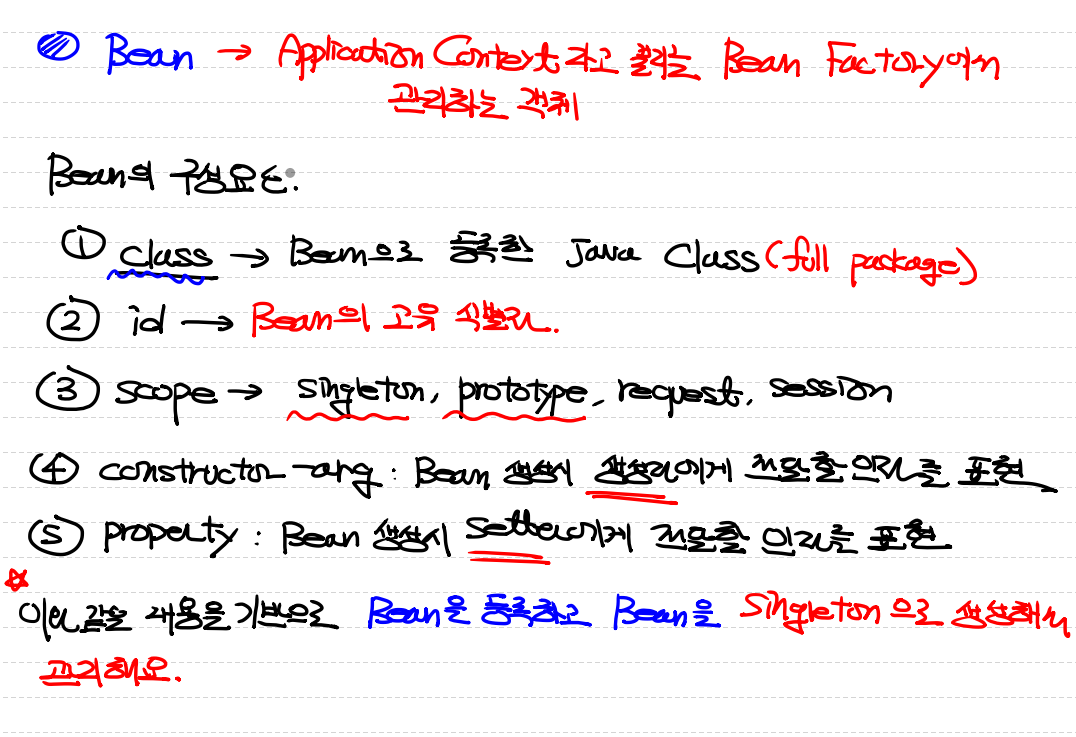 Bean → Application Context라고 불리는 Bean Factory에서
관리하는 객체
Bean의 구성요소.
① class → Bean으로 등록할 Java Class (full package)
② id → Bean의 고유 식별자.
③ scope → singleton, prototype, request, session
④ constructor-arg : Bean 생성시 생성자에게 전달할 인자를 표현
⑤ property : Bean 생성시 setter에게 전달할 인자를 표현
이와 같은 내용을 기반으로 Bean을 등록하고 Bean을 singleton으로 생성해서
관리해요.